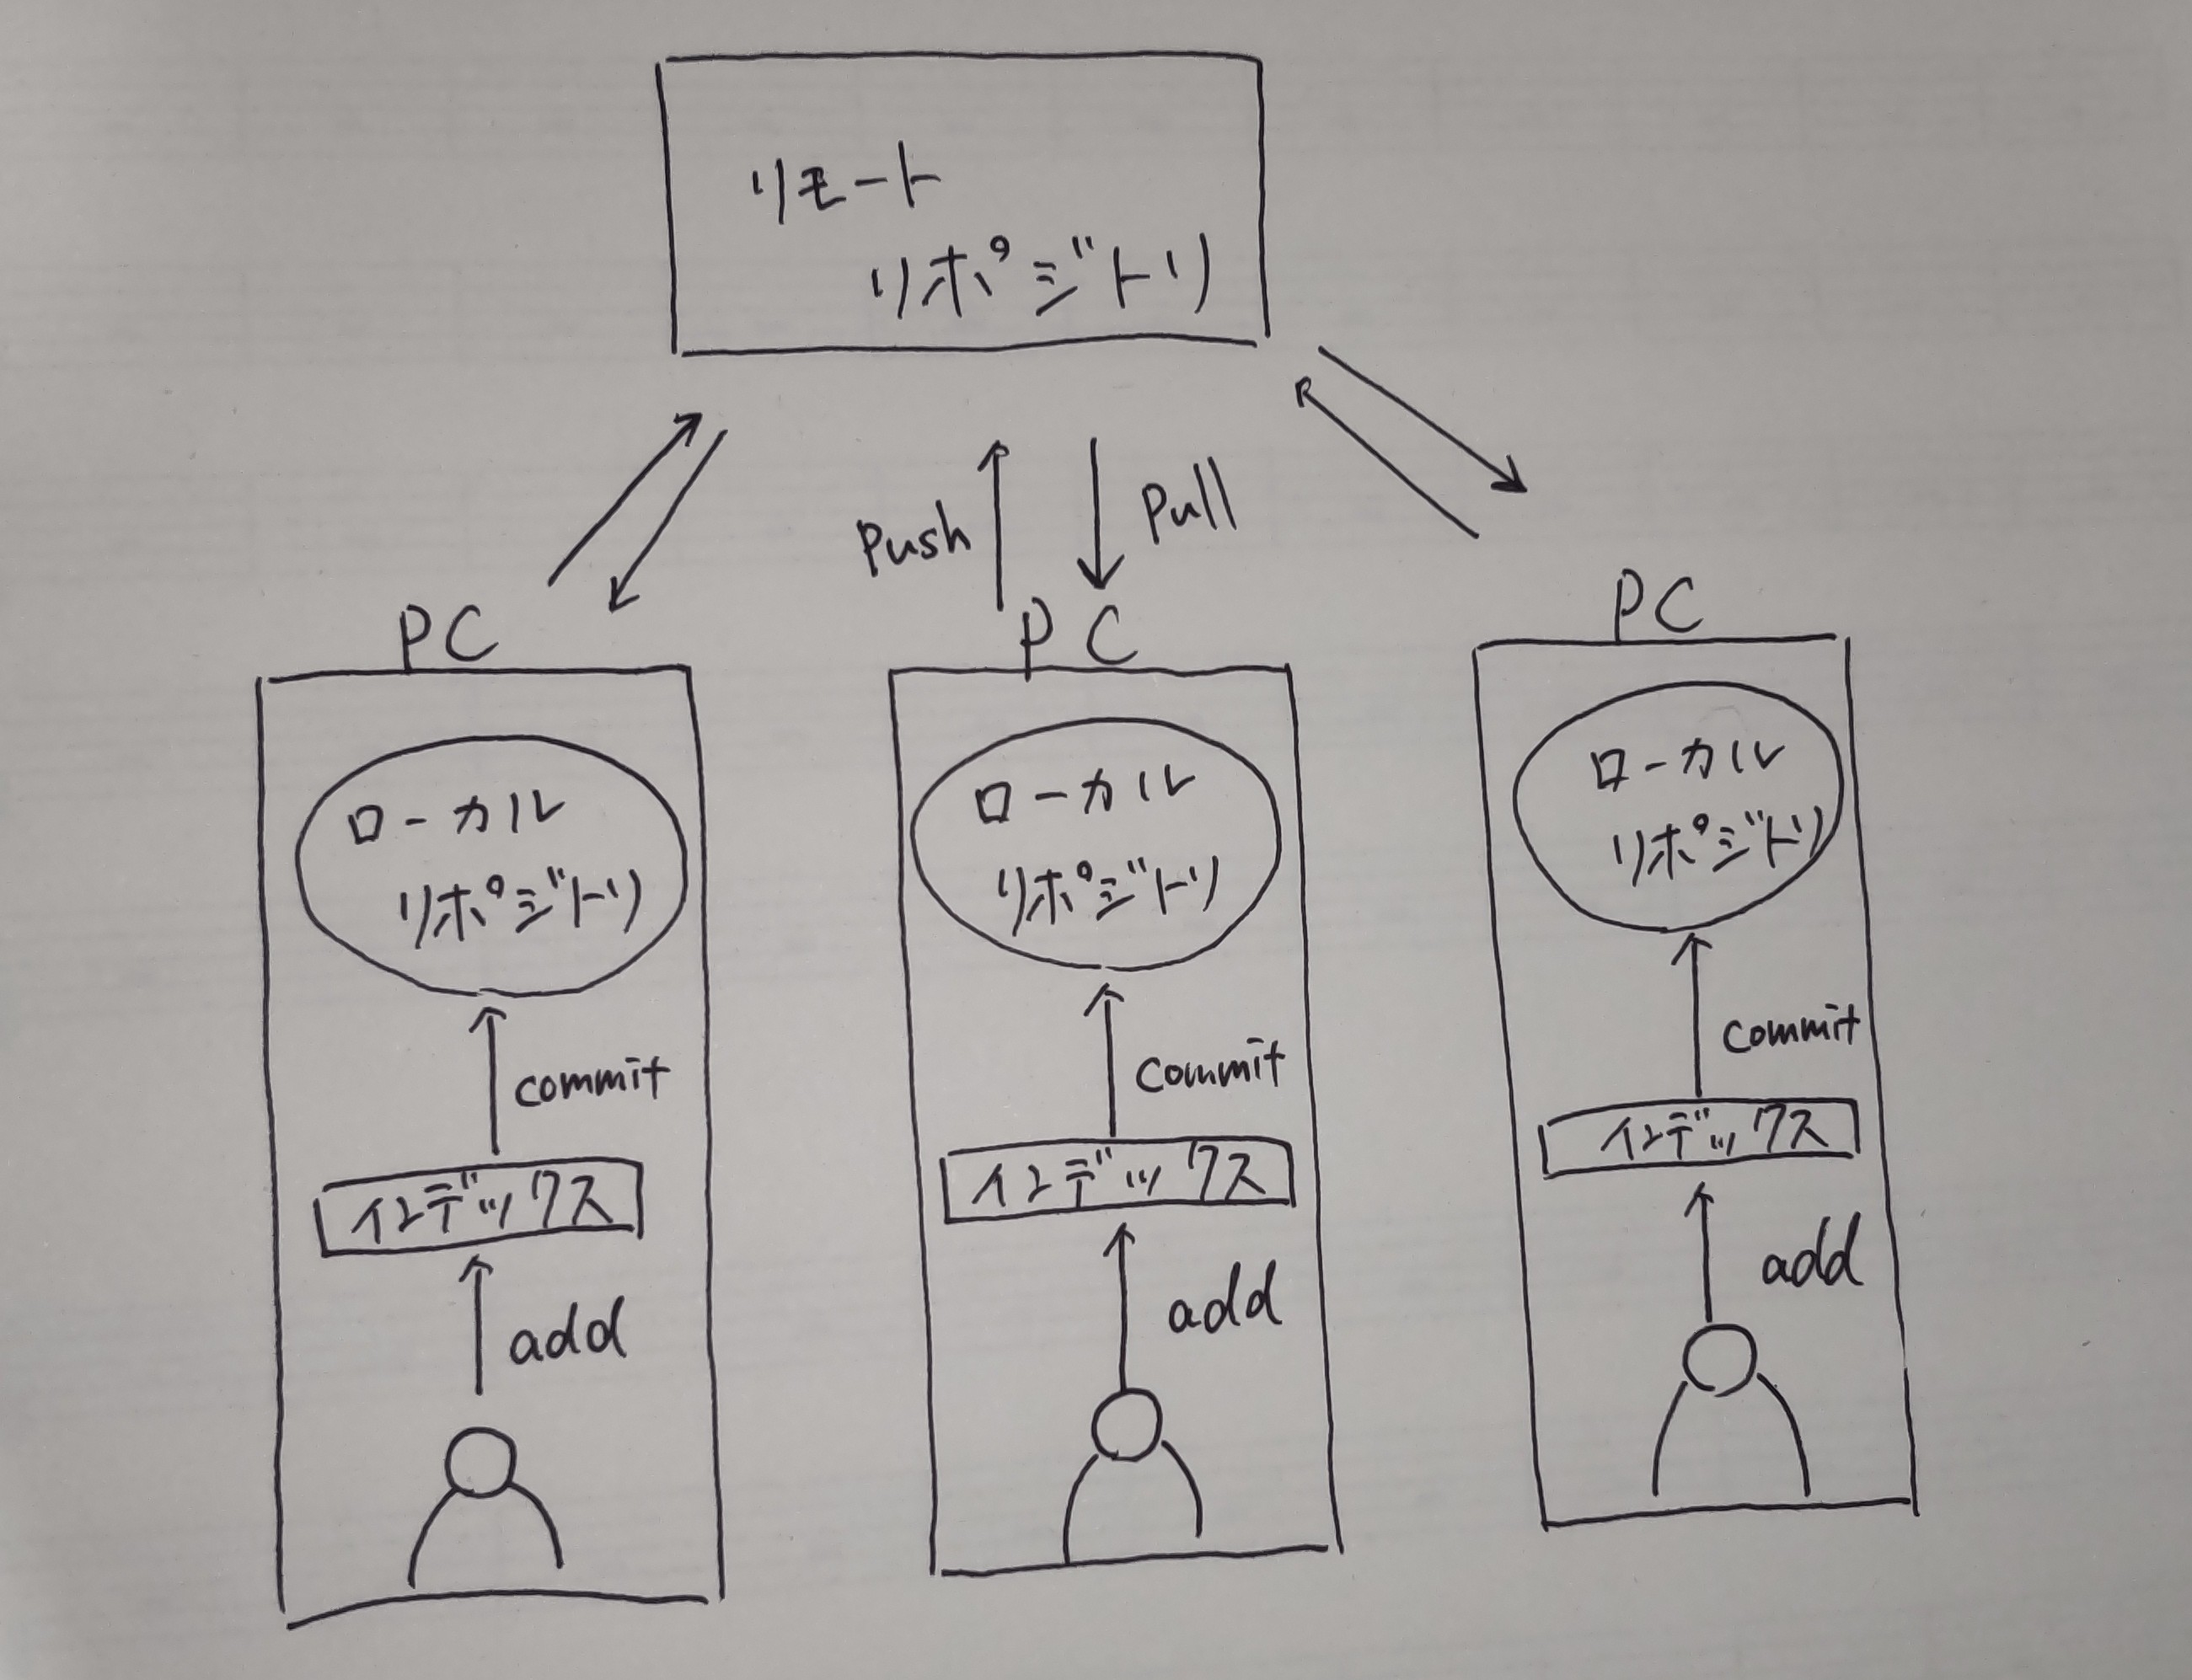 リモート
リポジトリ
Push
Pull
PC
ローカル
リポジトリ
commit
インデックス
add
PC
ローカル
リポジトリ
commit
インデックス
add
PC
ローカル
リポジトリ
commit
インデックス
add